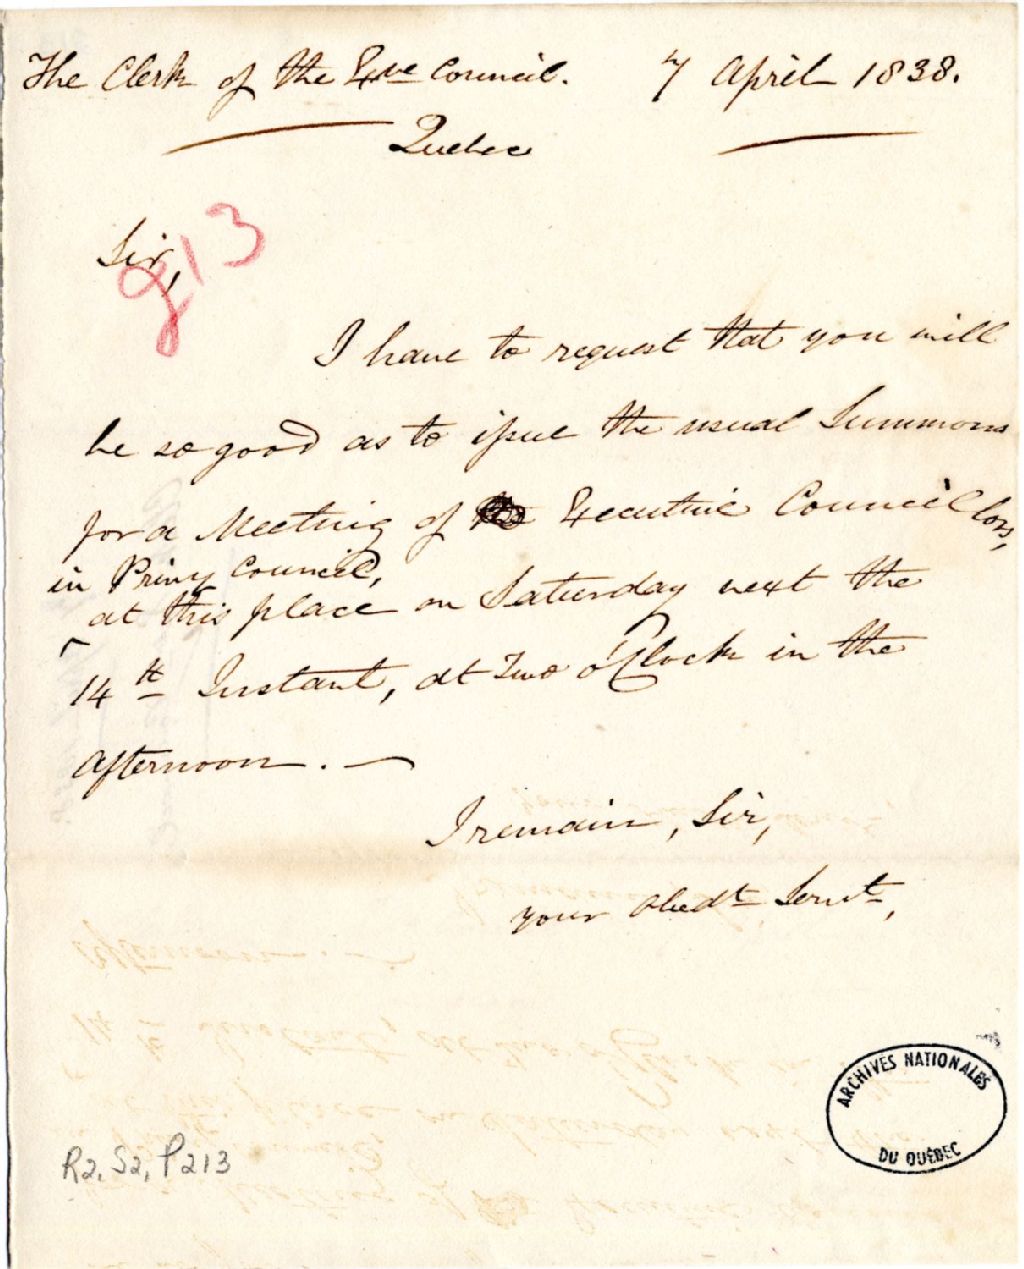 The Clerk of the Exve Council. 7 April 1838.
Quebec
213
Sir,
I have to request that you will
be so good as to issue the usual Summons
for a Meeting of Executive Councillors,
in Privy Council,
at this place on Saturday next the
14th Instant, at Two o'Clock in the
afternoon. —
I remain, Sir,
your Obedt Servt,
ARCHIVES NATIONALES
DU QUÉBEC
R2, S2, P213